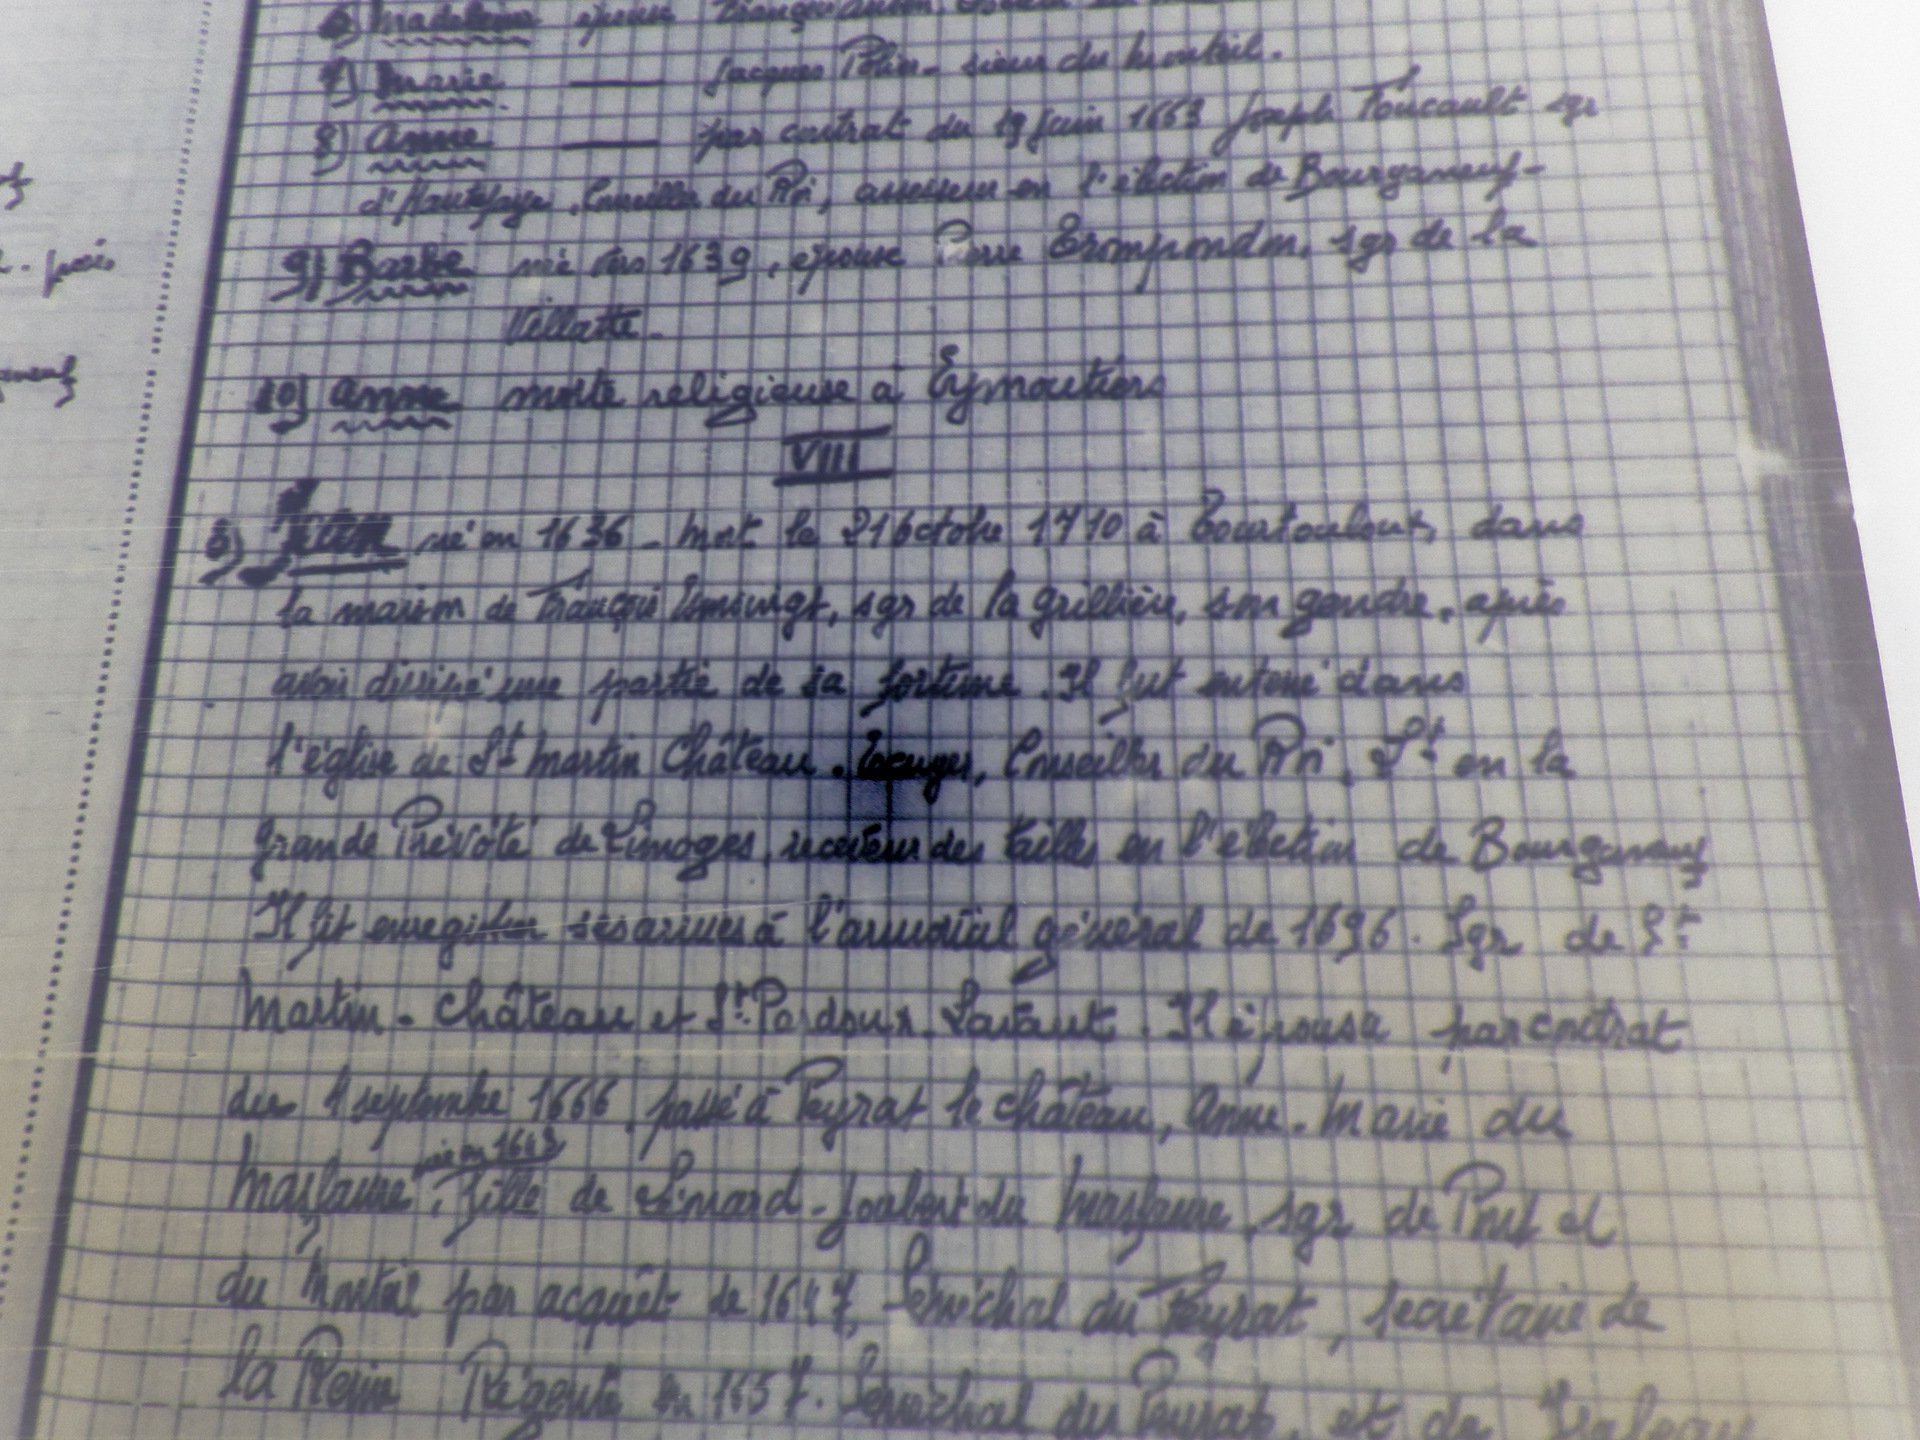 6) Madeleine épouse
7) Marie — Jacques Polin - sieur du
8) Anne — par contrat du 19 juin 1663 Joseph Foucault sgr
d'Hautefaye, Conseiller du Roi, assesseur en l'élection de Bourganeuf -
9) Barbe née vers 1639, épouse Pierre Trompondon, sgr de la
Villatte -
10) Anne morte religieuse à Eymoutiers
VIII
5) Jean né en 1636 - mort le 21 octobre 1710 à Tourtouloux, dans
la maison de François sgr de la Grillière, son gendre, après
avoir dissipé une partie de sa fortune. Il fut enterré dans
l'église de St Martin Château. Ecuyer, Conseiller du Roi, Lt en la
Grande Prévôté de Limoges, receveur des tailles en l'élection de Bourganeuf
Il fit enregistrer ses armes à l'armorial général de 1696. Sgr de St
Martin - Château et St Pardoux - Lavaut. Il épousa par contrat
du 1 septembre 1666, passé à Peyrat le château, Anne - Marie du
née en 1643
Maslaure, fille de Léonard - Joubert du Maslaure, sgr de Pont et
du Monteil par acquêt de 1647, Sénéchal du Peyrat, secrétaire de
la Reine Régente en 1657. Sénéchal du Peyrat, et de